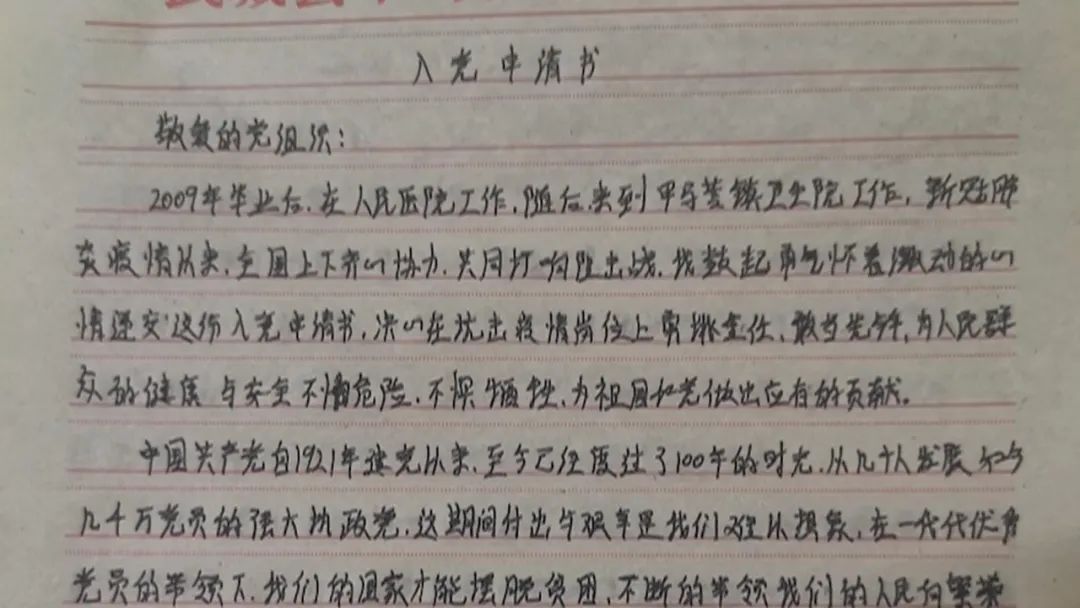 入党申请书
敬爱的党组织：
2009年毕业后，在人民医院工作，随后来到甲马营镇卫生院工作，新冠肺
炎疫情以来，全国上下齐心协力，共同打响阻击战，我鼓起勇气怀着激动的心
情递交这份入党申请书，决心在抗击疫情岗位上勇挑重任，敢当先锋，为人民群
众的健康与安全不惧危险，不惧牺牲，为祖国和党做出应有的贡献。
中国共产党自1921年建党以来，至今已经度过了100年的时光，从几十人发展
几千万党员的强大执政党，这期间付出与艰辛是我们难以想象，在一代代优秀
党员的带领下，我们的国家才能摆脱贫困，不断的带领我们的人民向繁荣